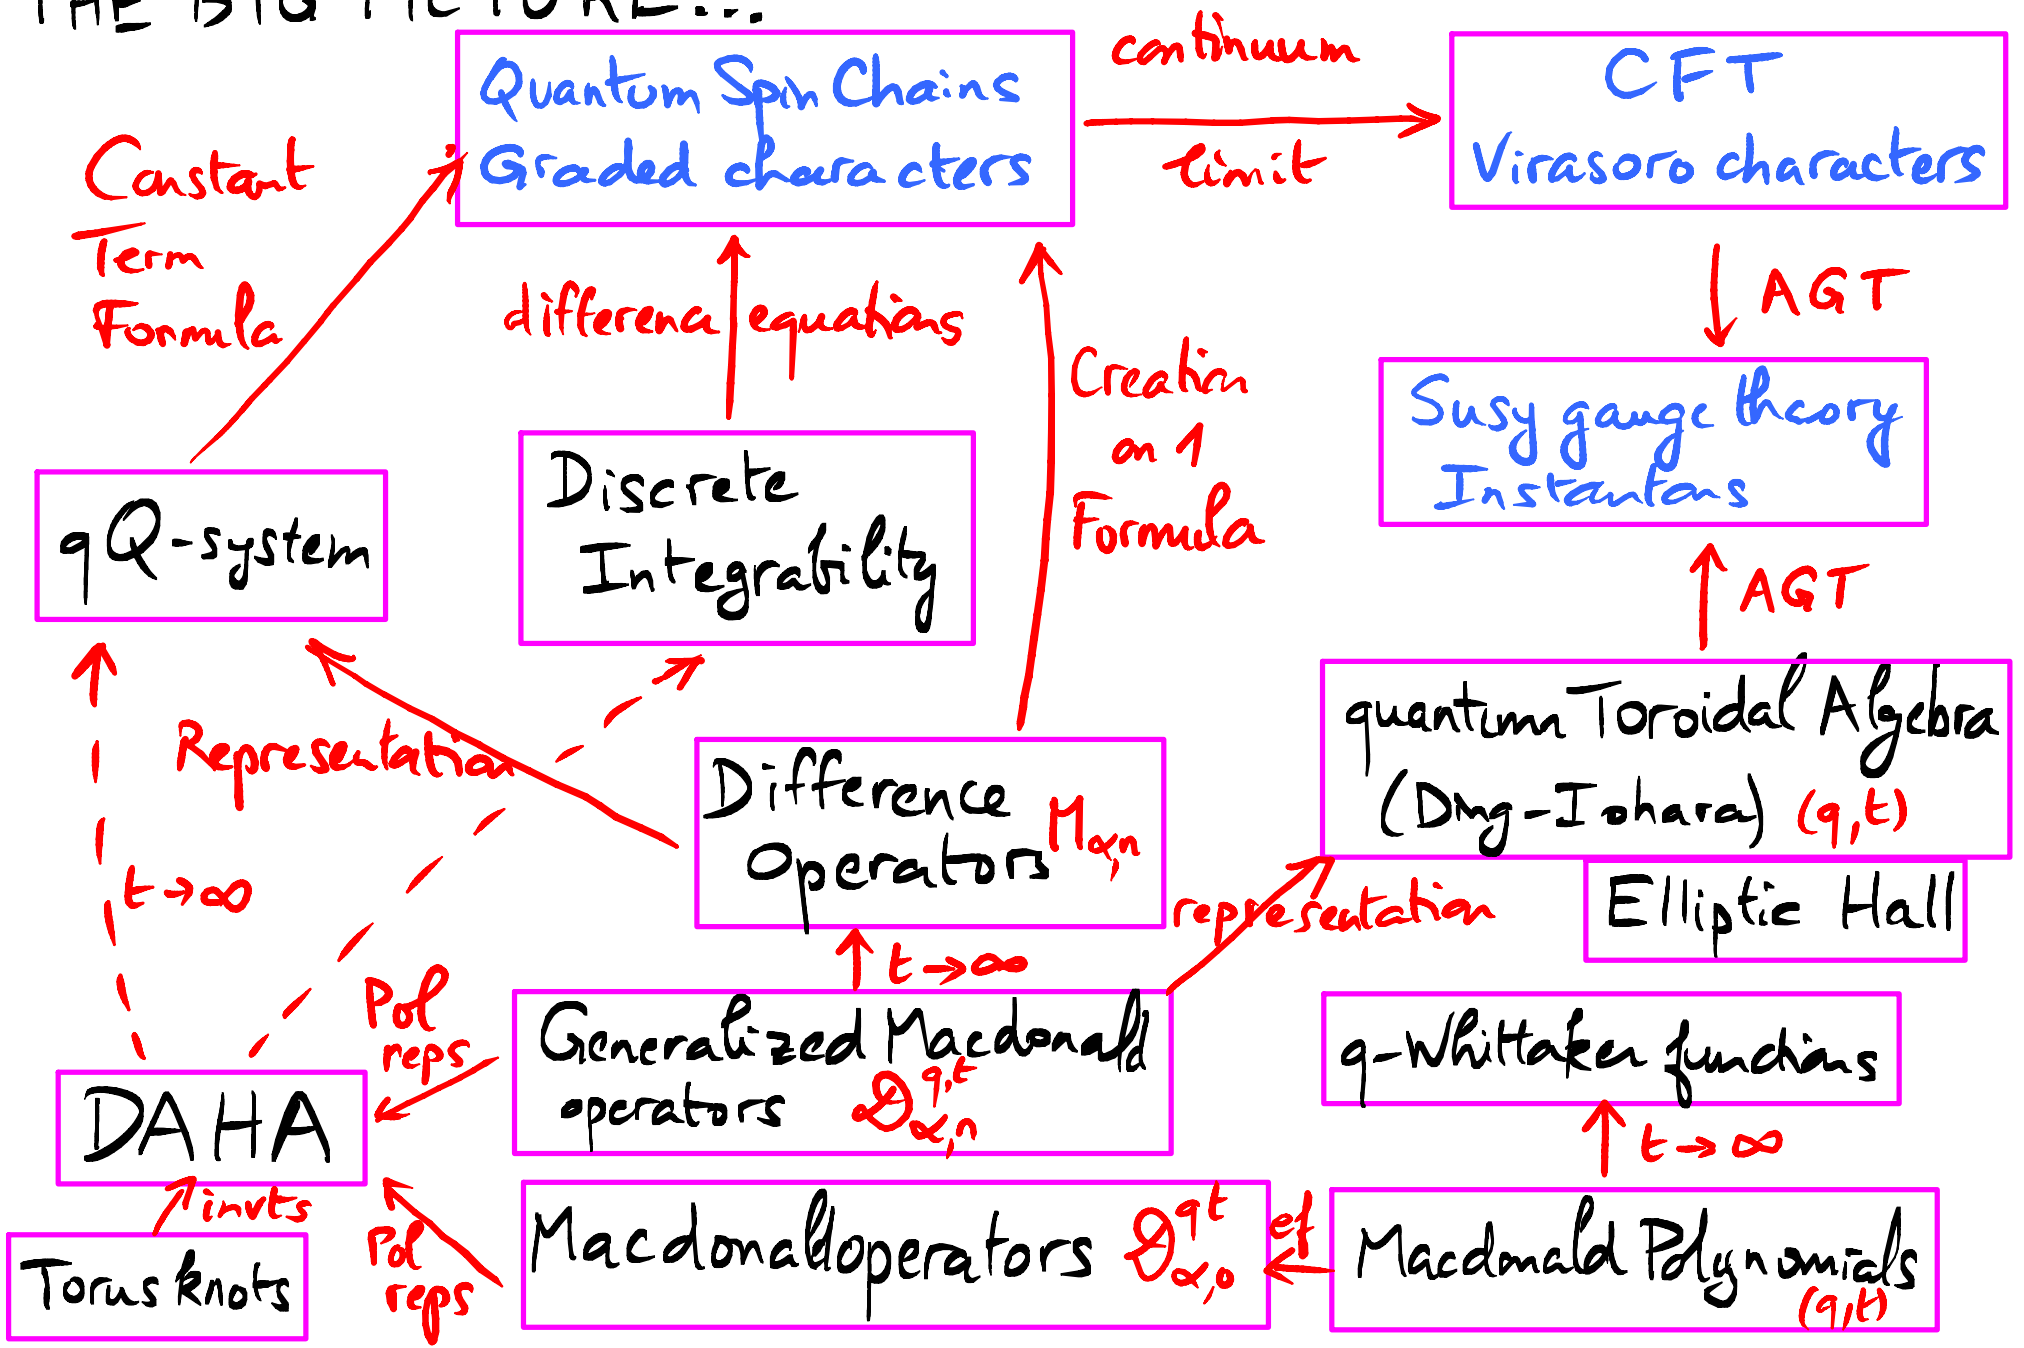 THE BIG PICTURE...
Quantum Spin Chains
Graded characters
continuum
limit
CFT
Virasoro characters
Constant
Term
Formula
difference equations
Creation
on 1
Formula
AGT
Susy gauge theory
Instantons
AGT
qQ-system
Discrete
Integrability
Representation
Difference
Operators M α,n
quantum Toroidal Algebra
(Ding-Iohara) (q,t)
Elliptic Hall
representation
t→∞
t→∞
Pol
reps
Generalized Macdonald
operators 𝒟 q,t α,n
q-Whittaker functions
t→∞
DAHA
invts
Torus knots
Pol
reps
Macdonald operators 𝒟 q t α,0
ef
Macdonald Polynomials
(q,t)